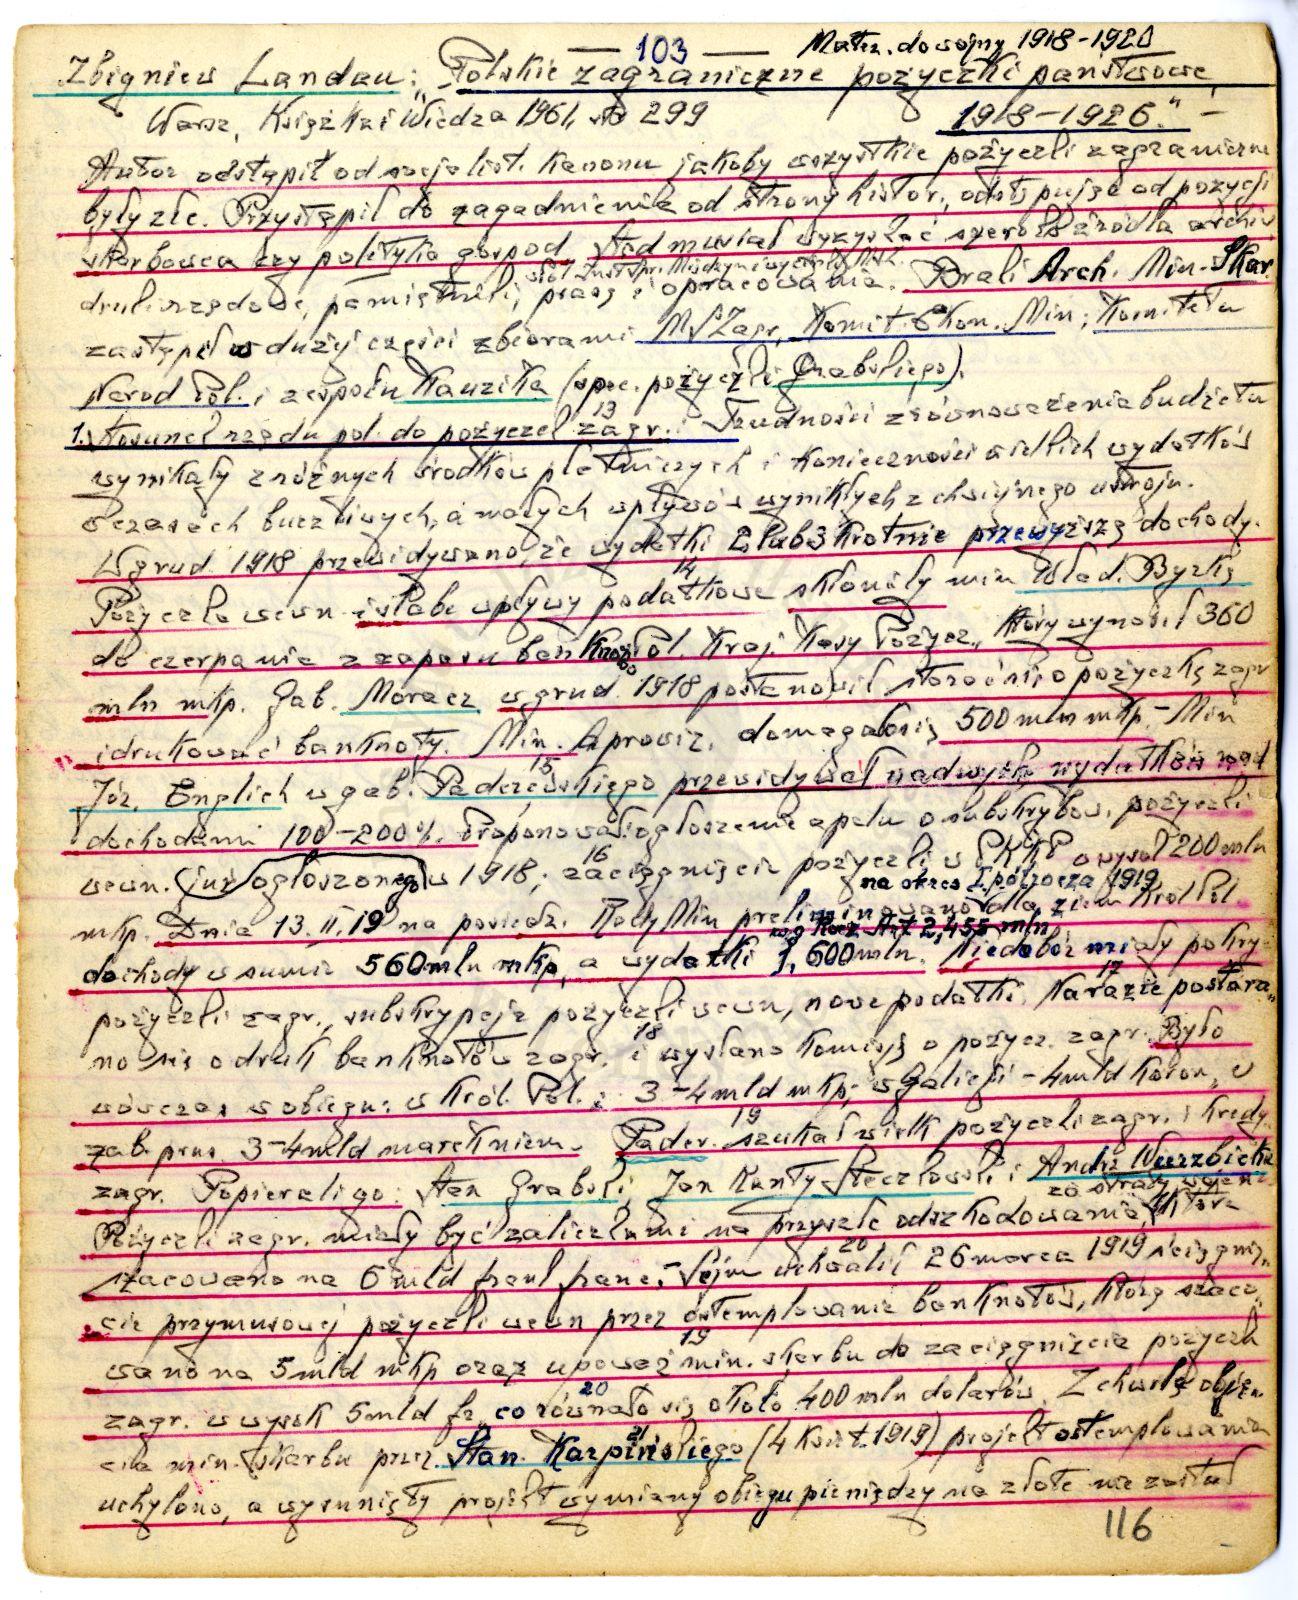 — 103 — Mater. do wojny 1918-1920
Zbigniew Landau: „Polskie zagraniczne pożyczki państwowe
Warsz, Książka i Wiedza 1961, str 299 1918-1926." —
Autor odstąpił od socjalist. kanonu jakoby wszystkie pożyczki zagraniczne
były złe. Przystąpił do zagadnienia od strony histor., odstępując od pozycji
skarbowca czy polityka gospod. Stąd musiał wyzyskać szeroko źródła archiw
druki rządowe, pamiętniki, prasę i opracowania. Braki Arch. Min. Skar.
zastąpił w dużej części zbiorami MSZagr, Komit. Ekon. Min; Komitetu
Narod Pol. i zespołu Kauzika (spec. pożyczki Grabskiego).
1. Stosunek rządu pol. do pożyczek zagr. 13 Trudności zrównoważenia budżetu
wynikały z różnych środków płatniczych i konieczności wielkich wydatków
w czasach burzliwych, a małych wpływów wynikłych z chwiejnego ustroju.
W grud. 1918 przewidywano, że wydatki 2 lub 3 krotnie przewyższą dochody.
Pożyczka wewn i słabe wpływy podatkowe 14 skłoniły min Wład. Byrkę
do czerpania z zapasu banknotów Pol. Kraj. Kasy Pożycz., który wynosił 360
mln mkp. Gab. Moracz w grud. 1918 postanowił starać się o pożyczkę zagr
i drukować banknoty. Min. Aprowiz. domagało się 500 mln mkp. – Min
Józ. Englich w gab. Paderewskiego 15 przewidywał nadwyżkę wydatków nad
dochodami 100-200%. Proponował ogłoszenie apelu o subskrybow. pożyczki
wewn. (już ogłoszonego) w 1918; zaciągnięcie 16 pożyczki w PKKP o wysok 200 mln
na okres I półrocza 1919
mkp. Dnia 13.II.19 na posiedz. Rady Min preliminowano dla ziem Król Pol.
wg Rocz. 2,455 mln
dochody w sumie 560 mln mkp, a wydatki 1,600 mln. Niedobór miały pokry
pożyczki zagr., subskrypcja pożyczki wewn, nowe podatki. 17 Narazie postara„
no się o druk banknotów zagr. 18 i wysłano komisję o pożycz. zagr. Było
wówczas w obiegu: w Król. Pol.: 3-4 mld mkp; w Galicji – 4 mld koron, w
zab. prus. 3-4 mld marek niem. Pader. 19 szukał wielk pożyczki zagr. i kredy.
zagr. Popierali go: Stan Grabski, Jan Kanty Steczkowski i Andrz Wierzbicki
za straty wojenne
Pożyczki zagr. miały być zaliczkami na przyszłe odszkodowania, które
szacowano na 6 mld frank franc. – Sejm uchwalił 20 26 marca 1919 ściągnię„
cie przymusowej pożyczki wewn przez ostemplowanie banknotów, którą szaco„
wano na 5 mld mkp oraz upoważ 19 min. skarbu do zaciągnięcia pożyczk
zagr. w wysok 5 mld fr, co 20 równało się około 400 mln dolarów. Z chwilą obję„
cia min. skarbu przez Stan. Karpińskiego 21 (4 kwiet. 1919) projekt ostemplowania
uchylono, a wysunięty projekt wymiany obiegu pieniędzy na złote nie został
116